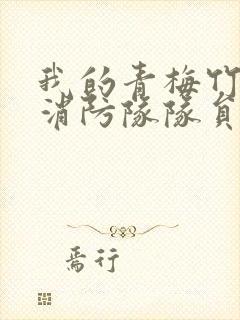 我的青梅竹
消防隊隊員
焉行